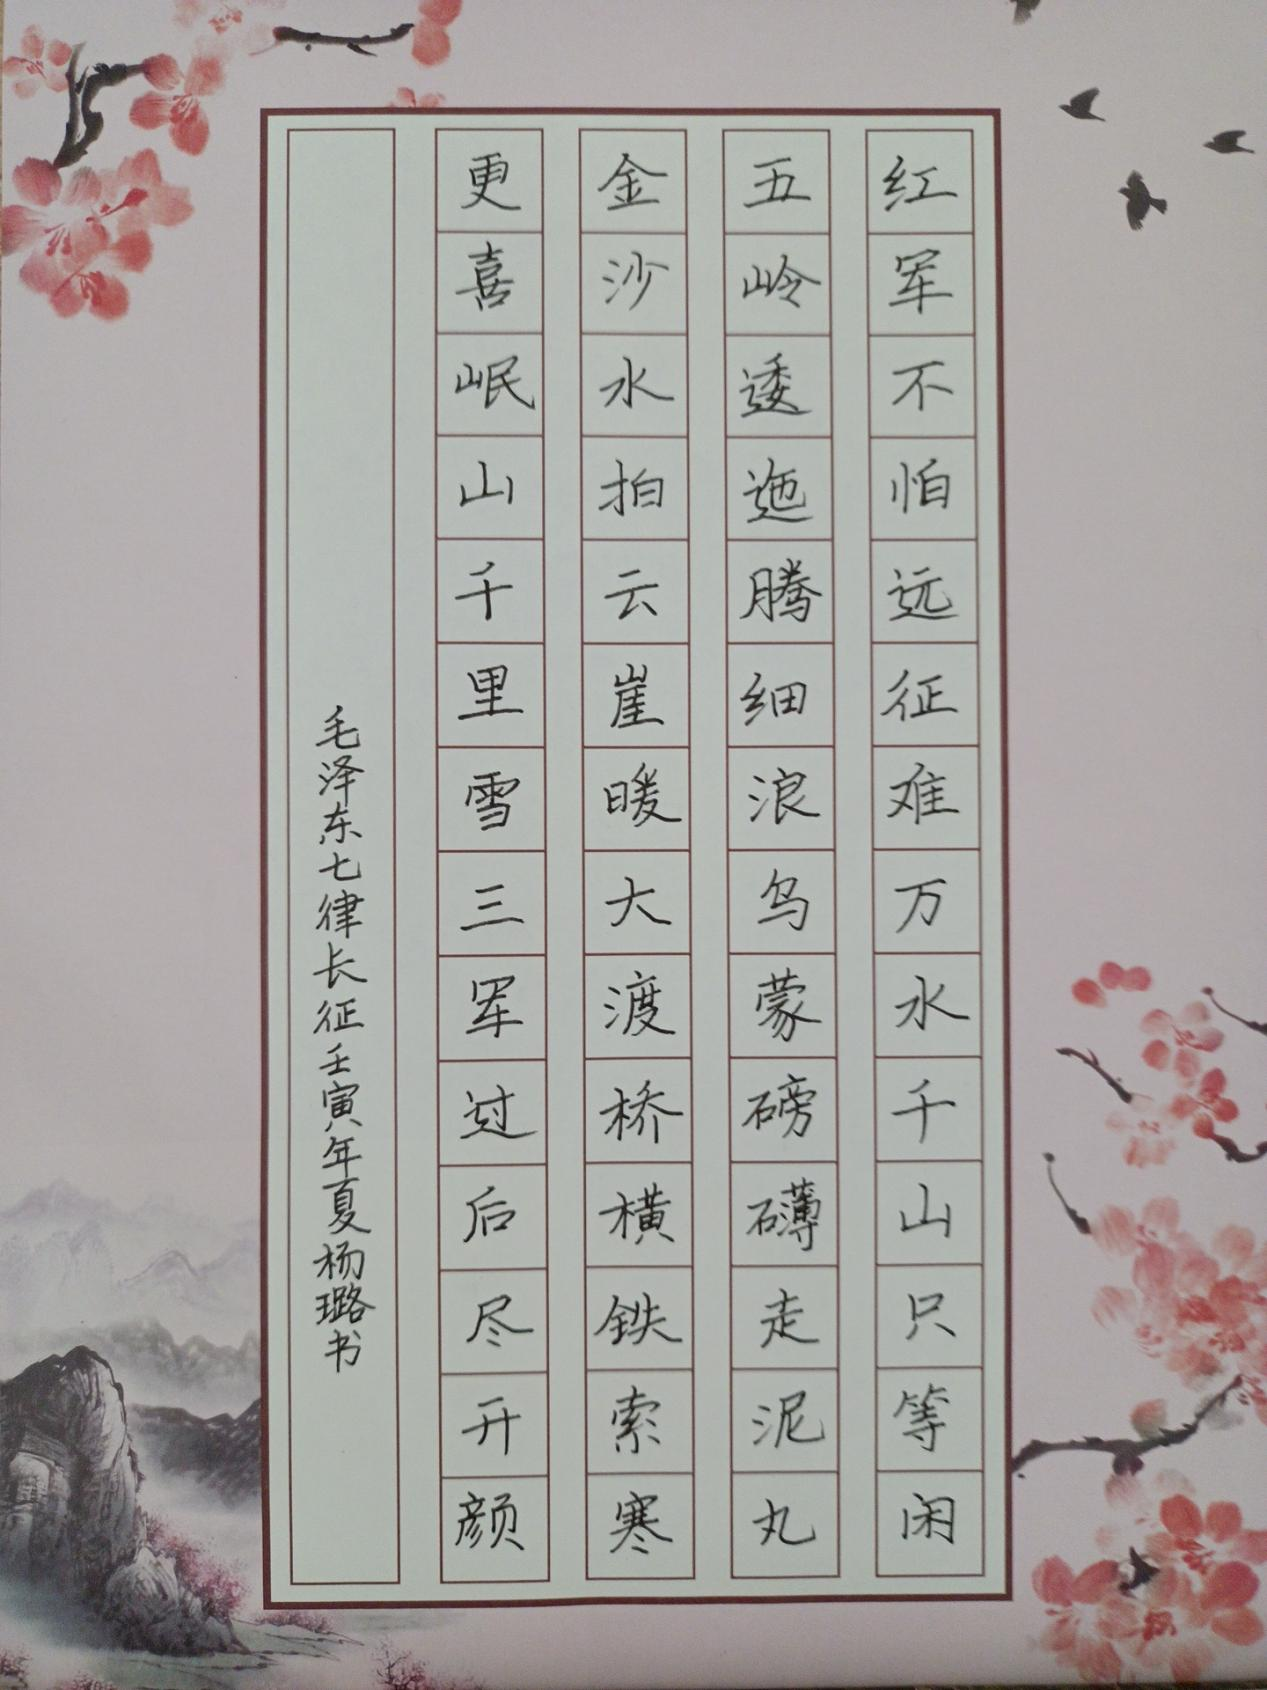 红军不怕远征难万水千山只等闲
五岭逶迤腾细浪乌蒙磅礴走泥丸
金沙水拍云崖暖大渡桥横铁索寒
更喜岷山千里雪三军过后尽开颜
毛泽东七律长征壬寅年夏杨璐书